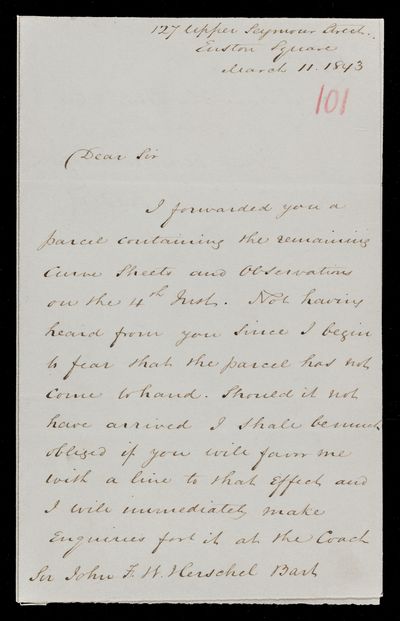 127 Upper Seymour Street.
Euston Square
March 11. 1843
101
Dear Sir
I forwarded you a
parcel containing the remaining
Curve Sheets and Observations
on the 4th Inst. Not having
heard from you since I begin
to fear that the parcel has not
come to hand. Should it not
have arrived I shall be much
obliged if you will favor me
with a line to that Effect and
I will immediately make
Enquiries for it at the Coach
Sir John F. W. Herschel Bart